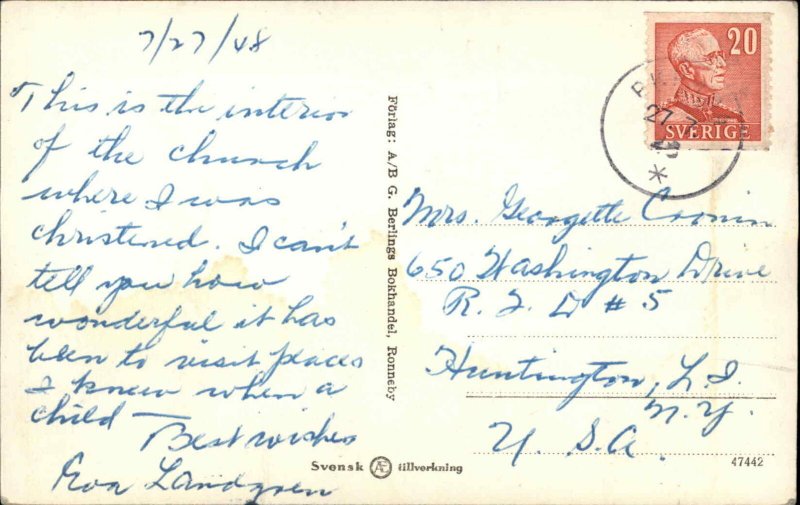 7/27/48
This is the interior
of the church
where I was
christened. I can't
tell you how
wonderful it has
been to visit places
I knew when a
child —
Best wishes
Eva Landgren
Förlag: A/B G. Berlings Bokhandel, Ronneby
Svensk Æ tillverkning
20
SVERIGE
27
Mrs. Georgette Cronin
650 Washington Drive
R. F. D # 5
Huntington, L. I.
N. Y.
U. S. A.
47442